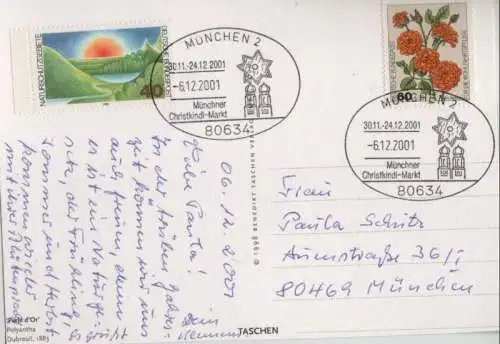 NATURSCHUTZGEBIETE
DEUTSCHE BUNDESPOST
40
MÜNCHEN 2
30.11.-24.12.2001
-6.12.2001
Münchner
Christkindl-Markt
80634
60
MÜNCHEN 2
30.11.-24.12.2001
-6.12.2001
Münchner
Christkindl-Markt
80634
06.12.2001
Liebe Paula!
In der trüben Jahres-
zeit können wir uns
auch freuen, denn
es ist ein Naturge-
setz, daß Frühling,
Sommer und Herbst
kommen wieder
Es grüßt
Dein
Frau
Paula Schütz
Auenstraße 36/I
80469 München
© 1996 BENEDIKT TASCHEN
d'Or'
Polyantha
Dubreuil, 1885
TASCHEN